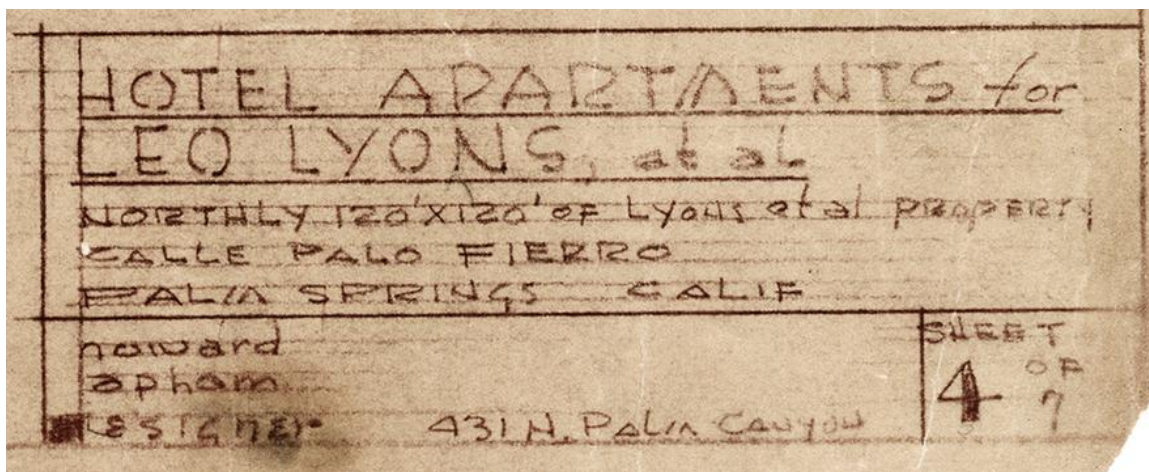 HOTEL APARTMENTS for
LEO LYONS, et al
NORTHLY 120'X120' OF Lyons et al PROPERTY
CALLE PALO FIERRO
PALM SPRINGS CALIF
howard
lapham
DESIGNER 431 N. PALM CANYON
SHEET
4 OF 7